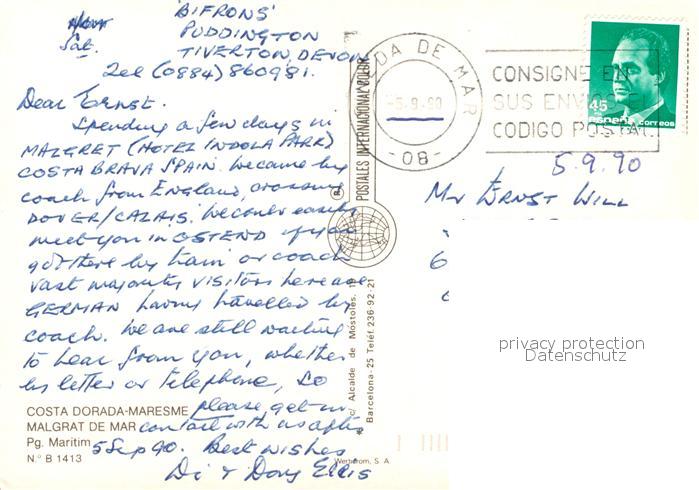 'BIFRONS'
PUDDINGTON
Sat. TIVERTON, DEVON
Tel (0884) 860981.
Dear Ernst.
Spending a few days in
MALGRET (HOTEL INDOLA PARK)
COSTA BRAVA SPAIN. We came by
coach from England, crossing
DOVER/CALAIS. We could easily
meet you in OSTEND if you
got there by train or coach
vast majority visitors here are
GERMAN having travelled by
coach. We are still waiting
to hear from you, whether
by letter or telephone, so
please get in
contact with us after
5 Sep 90. Best wishes
Di & Doug Ellis
COSTA DORADA-MARESME
MALGRAT DE MAR
Pg. Maritim
N.º B 1413
POSTALES INTERNACIONAL COLOR
c/ Alcalde de Mostoles, 19
Barcelona-25 Teléf. 236-92-21
S. A.
DA DE MAR
-5.-9.90
-08-
CONSIGNE EN
SUS ENVIOS E
CODIGO POSTAL
45
ESPAÑA correos
5.9.90
Mr ERNST WILL
6
privacy protection
Datenschutz